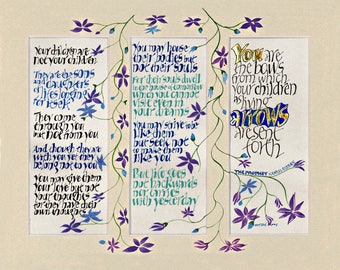 Your children are
not your children
They are the sons
and daughters
of life's longing
for itself
They come
through you
but not from you
And though they are
with you yet they
belong not to you
You may give them
your love but not
your thoughts
for they have their
own thoughts
You may house
their bodies but
not their souls
For their souls dwell
in the house of tomorrow
which you cannot
visit even in
your dreams
You may strive to be
like them
but seek not
to make them
like you
For life goes
not backwards
nor tarries
with yesterday
You are
the bows
from which
your children
as living
arrows
are sent
forth
THE PROPHET